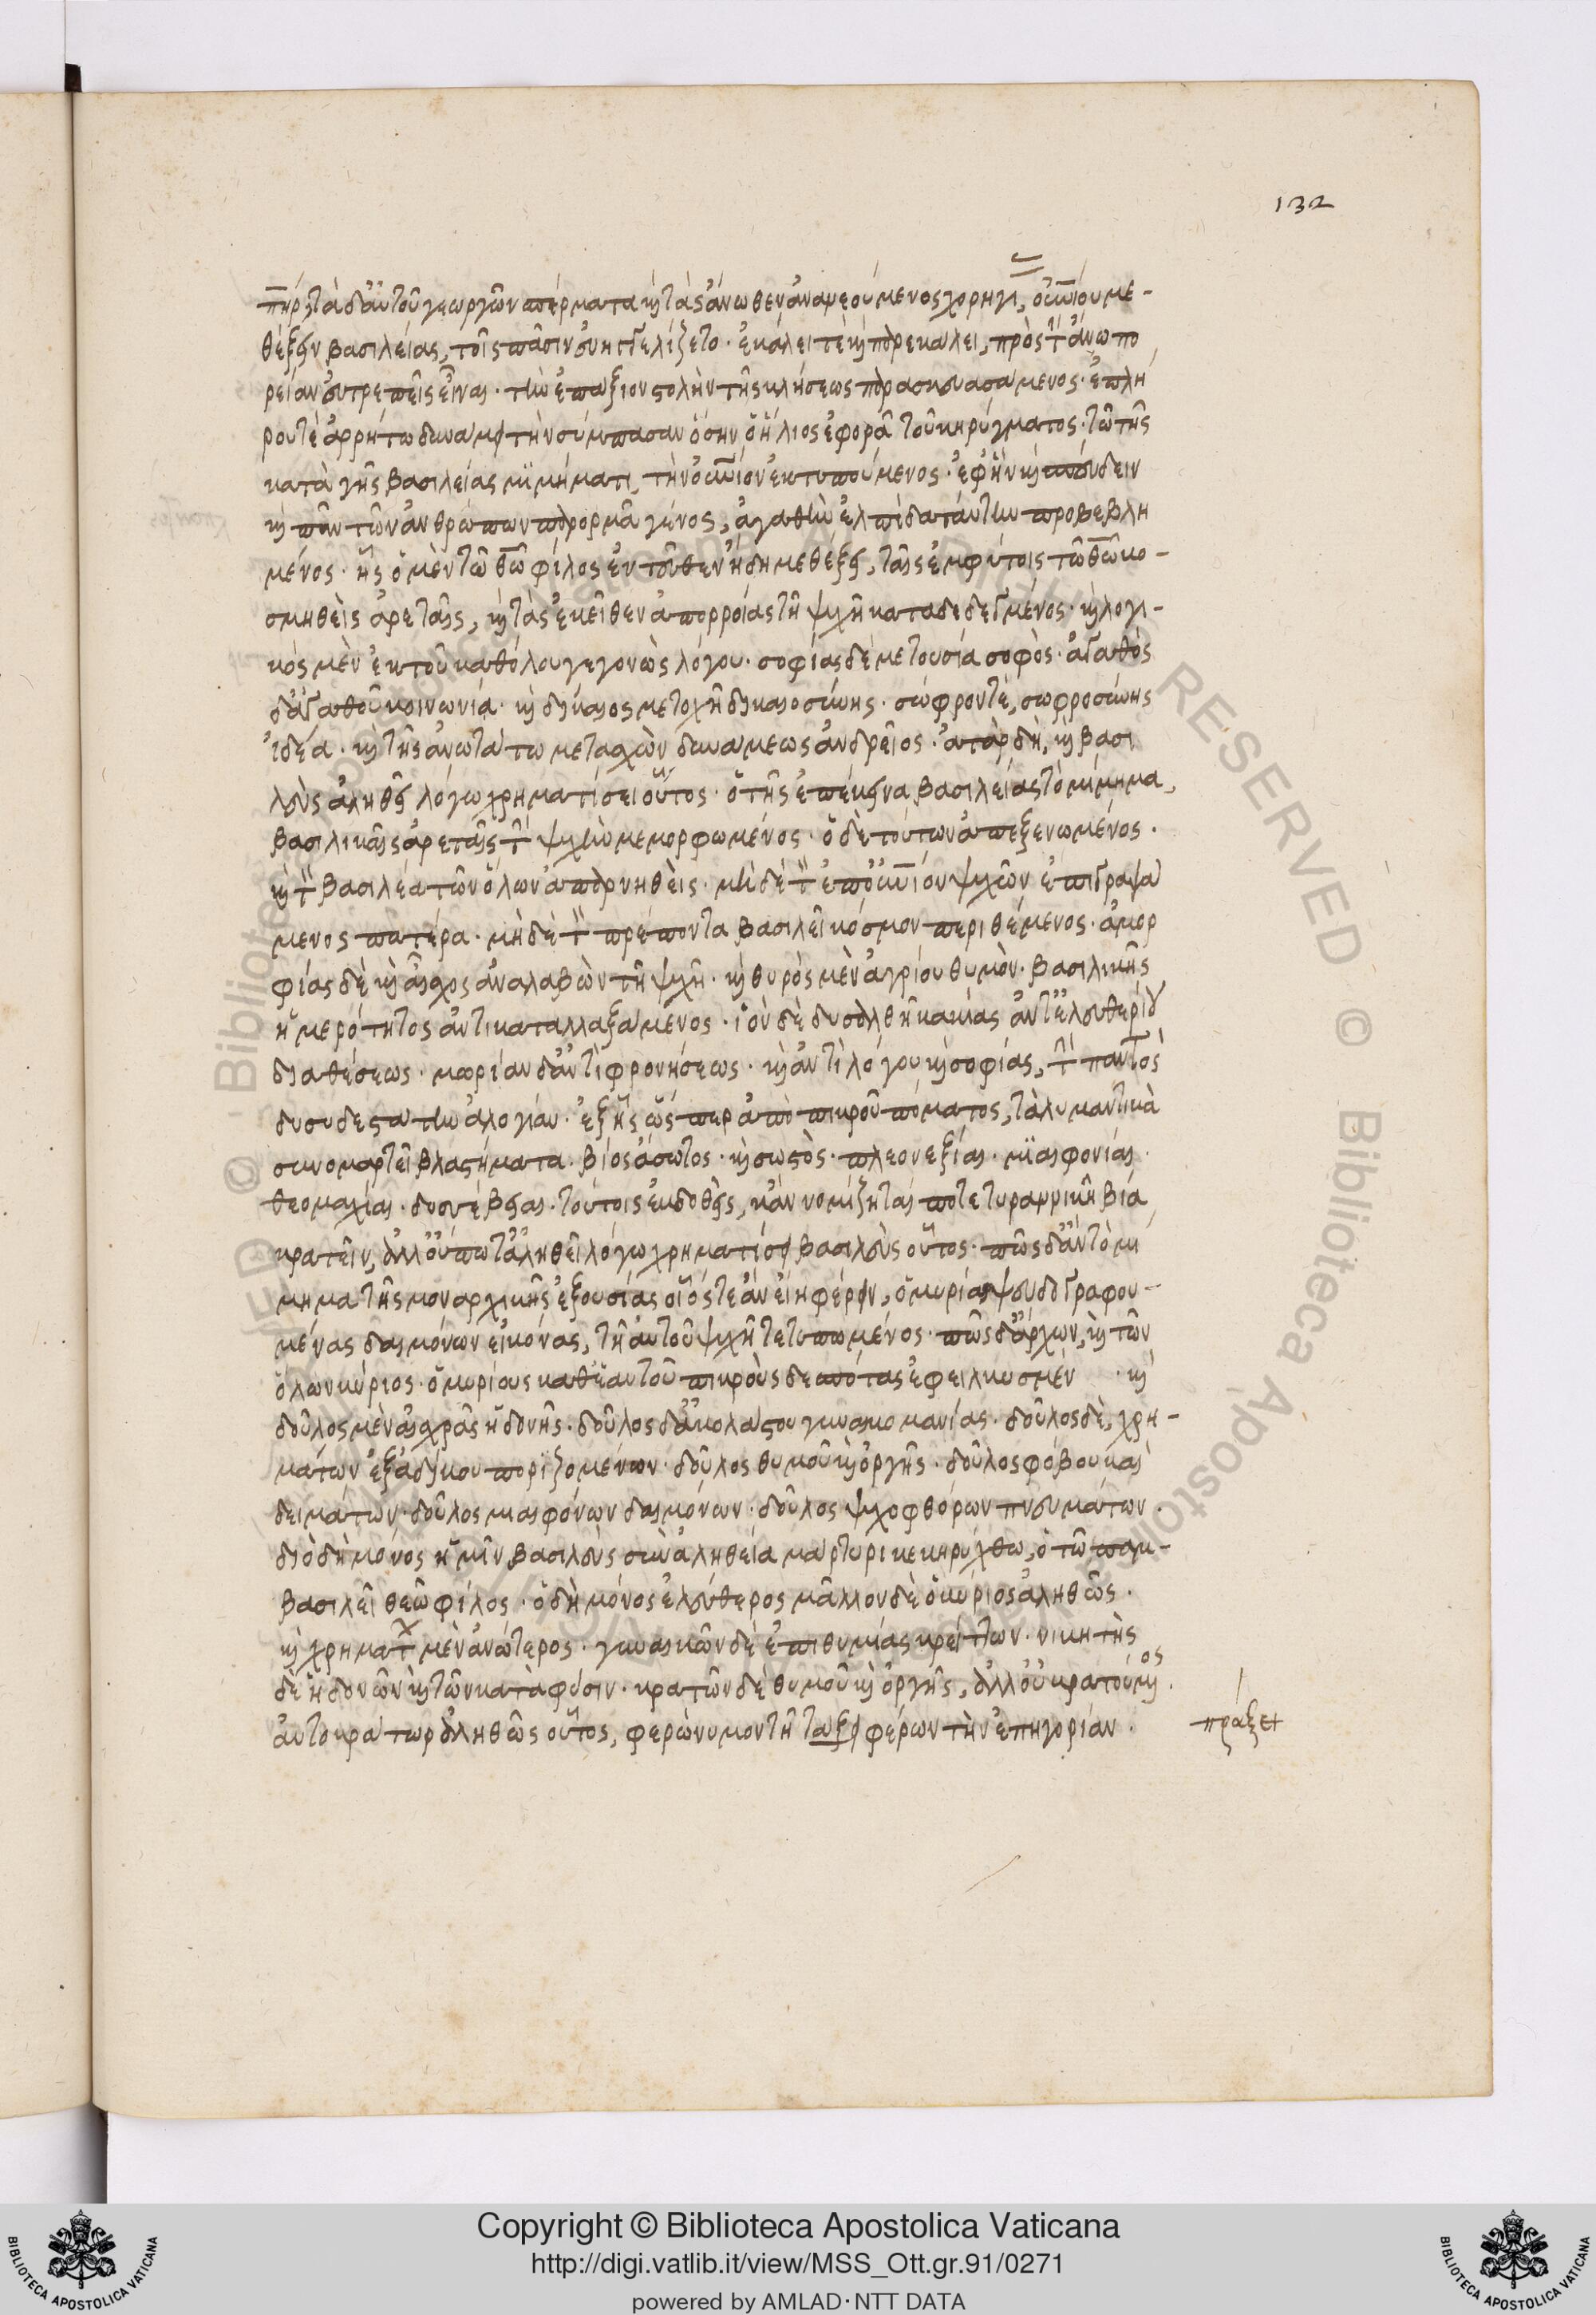 132
πηρ τὰ δ' αὐτοῦ γεωργῶν σπέρματα καὶ τὰς ἄνωθεν ἀνανεούμενος χορηγί, οὐνίου με-
θέξειν βασιλείας, τοῖς πᾶσιν εὐηγγελίζετο· ἐκάλει τὲ καὶ παρεκάλει, πρὸς τὴν ἄνω πο
ρείαν εὐτρεπεῖς εἶναι· τὴν ἐπαξίον στολὴν τῆς κλήσεως παρασκευασάμενος· ἐπλή
ρου τὲ ἀρρήτω δυνάμει τὴν σύμπασαν ὅσην ὁ ἥλιος ἐφορᾶ τοῦ κηρύγματος· τῶ τῆς
κατὰ γῆς βασιλείας μϊμήματι, τὴν οὐνίον ἐκτυπούμενος· ἐφ' ἣν καὶ σπεύδειν
καὶ πᾶν τῶν ἀνθρώπων παρορμᾶ γένος, ἀγαθὴν ἐλπίδα ταύτην προβεβλη
μένος· ἧς ὁ μὲν τῶ θῶ φίλος ἐντεῦθεν ἤδη μεθέξει, ταῖς ἐμφύτοις τῶ θῶ κο-
σμηθεὶς ἀρεταῖς, καὶ τὰς ἐκεῖθεν ἀπορροίας τῆ ψυχῆ καταδεδεγμένος· καὶ λογι-
κὸς μὲν ἐκ τοῦ καθόλου γεγονὼς λόγου· σοφίας δὲ μετουσία σοφὸς· ἀγαθὸς
δ' ἀγαθοῦ κοινωνία· καὶ δίκαιος μετοχῆ δικαιοσύνης· σώφρον τὲ, σωφροσύνης
ἰδέα· καὶ τῆς ἀνωτάτω μετασχὼν δυνάμεως ἀνδρεῖος· ἀτὰρ δὴ, καὶ βασι
λεὺς ἀληθεῖ λόγω χρηματίσει οὗτος· ὁ τῆς ἐπέκεινα βασιλείας τὸ μίμημα,
βασιλικαῖς ἀρεταῖς τὴν ψυχὴν μεμορφωμένος· ὁ δὲ τούτων ἀπεξενωμένος·
καὶ τὸν βασιλέα τῶν ὅλων ἀπαρνηθεὶς· μὴδὲ τὸν ἐπουνίον ψυχῶν ἐπιγραψά
μενος πατέρα· μὴδὲ τὸν πρέποντα βασιλεῖ κόσμον περιθέμενος· ἀμορ
φίας δὲ καὶ αἶσχος ἀναλαβὼν τῆ ψυχῆ· καὶ θυρὸς μὲν ἀγρίου θυμὸν· βασιλικῆς
ἡμερότητος ἀντικαταλλαξάμενος· ἰὸν δὲ δυσαλθῆ κακίας ἀντ' ἐλευθερίου
διαθέσεως· μωρίαν δ' ἀντὶ φρονήσεως· καὶ ἀντὶ λόγου καὶ σοφίας, τὴν παντὸς
δυσειδεστάτην ἀλογίαν· ἐξ ἧς ὥσπερ ἀπὸ πικροῦ πόματος, τὰ λυμαντικὰ
συνομαρτεῖ βλαστήματα· βίος ἄσωτος· καὶ σωστὸς· πλεονεξίαι· μϊαιφονίαι·
θεομαχίαι· δυσσέβειαι· τούτοις ἐκδοθεὶς, κἂν νομίζηταί ποτε τυραννικῆ βία
κρατεῖν, ἀλλ' οὔπω τ' ἀληθεῖ λόγω χρηματίσει βασιλεὺς οὗτος· πῶς δ' ἂν τὸ μί
μημα τῆς μοναρχικῆς ἐξουσίας οἷός τε ἂν εἴη φέρειν, ὁ μυρίας ψευδογραφου-
μένας δαιμόνων εἰκόνας, τῆ αὐτοῦ ψυχῆ τετυπωμένος· πῶς δ' ἄρχων, καὶ τῶν
ὅλων κύριος· ὁ μυρίους καθ' ἑαυτοῦ πικροὺς δεσπότας ἐφειλκυσμέν · καὶ
δοῦλος μὲν αἰσχρᾶς ἡδονῆς· δοῦλος δ' ἀκολάστου γυναικομανίας· δοῦλος δὲ, χρη-
μάτων ἐξ ἀδίκου ποριζομένων· δοῦλος θυμοῦ καὶ ὀργῆς· δοῦλος φόβου καὶ
δειμάτων· δοῦλος μιαιφόνων δαιμόνων· δοῦλος ψυχοφθόρων πνευμάτων·
διὸ δὴ μόνος ἡμῖν βασιλεὺς σὺν ἀληθεία μάρτυρι κεκηρύχθω, ὁ τῶ παμ-
βασιλεῖ θεῶ φίλος· ὁ δὴ μόνος ἐλεύθερος μᾶλλον δὲ ὁ κύριος ἀληθῶς·
καὶ χρημάτων μὲν ἀνώτερος· γυναικῶν δὲ ἐπιθυμίας κρείττων· νικητὴς
δὲ ἡδονῶν καὶ τῶν κατὰ φύσιν· κρατῶν δὲ θυμοῦ καὶ ὀργῆς, ἀλλ' οὐ κρατούμενος·
αὐτοκράτωρ ἀληθῶς οὗτος, φερώνυμον τῆ τάξει φέρων τὴν ἐπηγορίαν·
πράξει